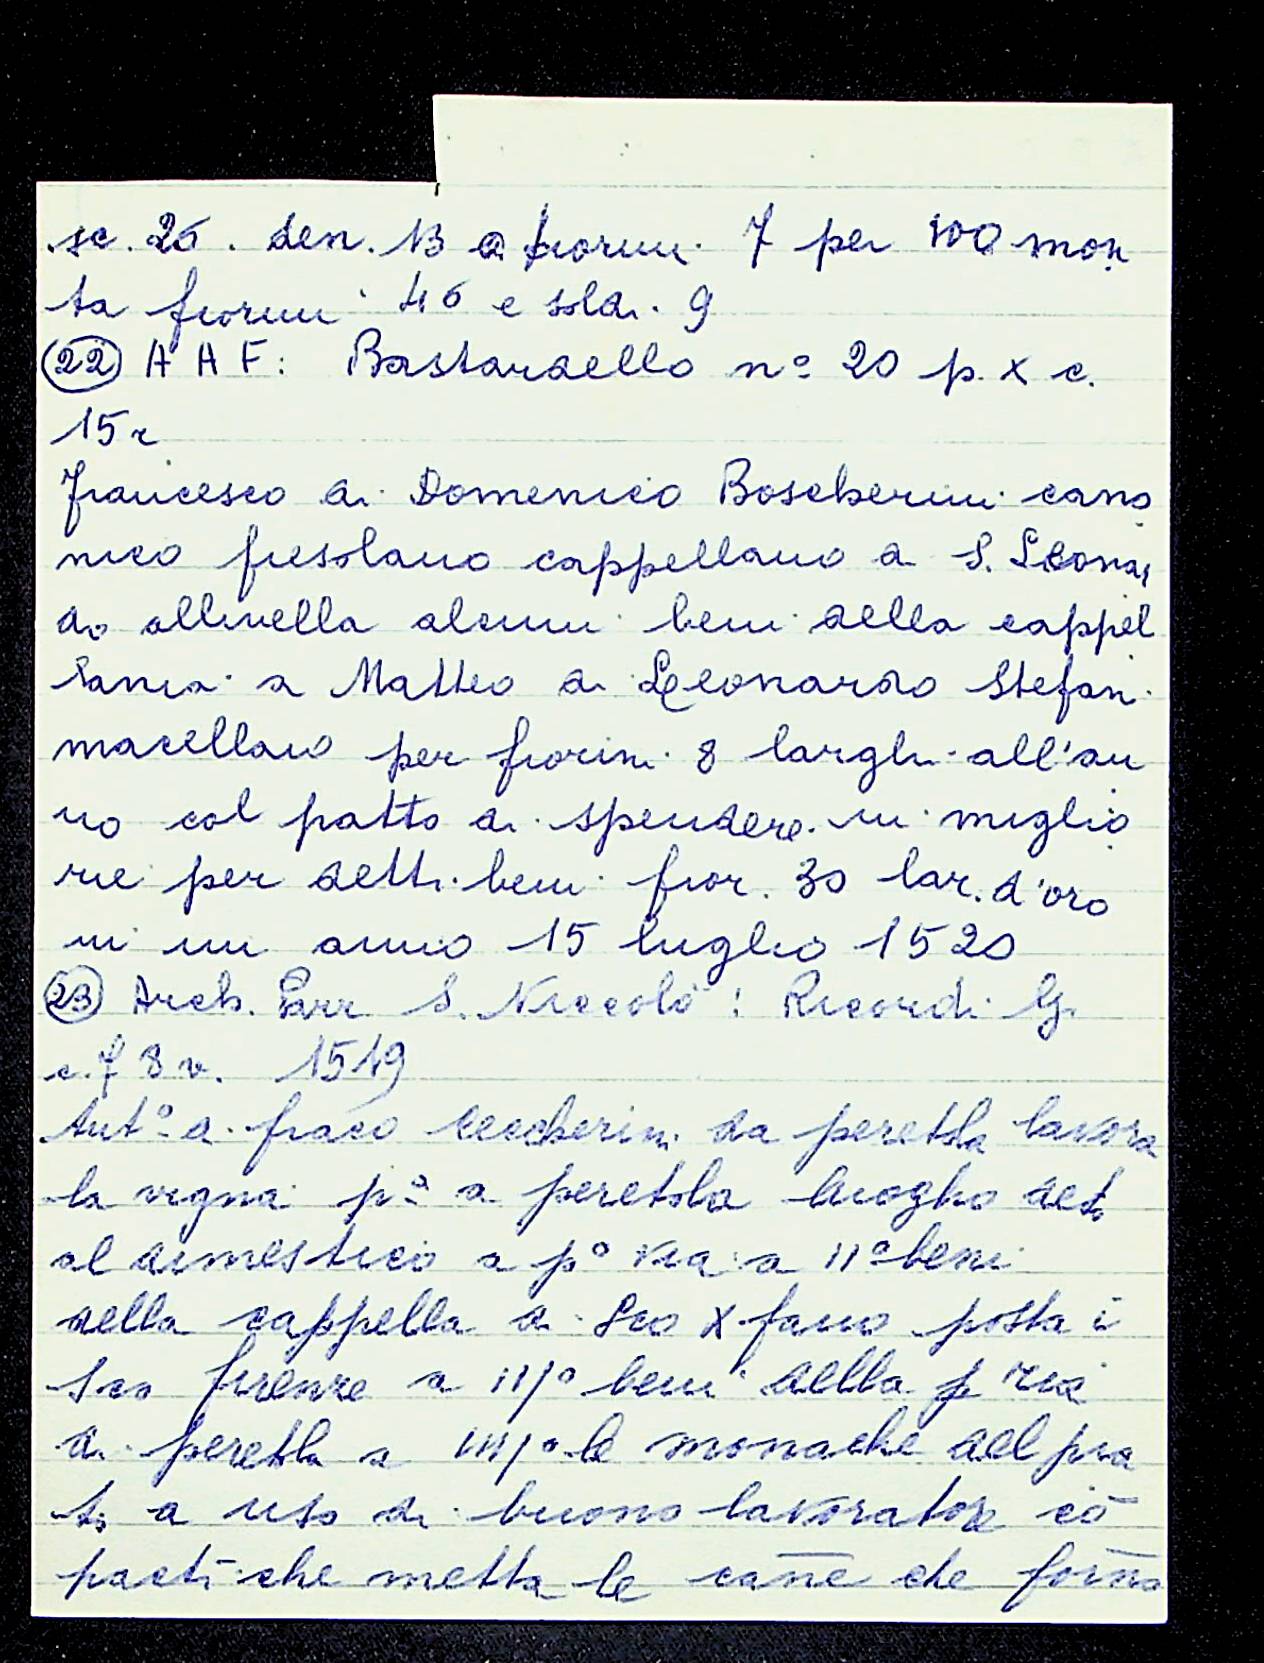 sc. 26. den. 13 a fiorini 7 per 100 mon
ta fiorini 46 e soldi 9
(22) A A F: Bastardello nº 20 p. X c.
15 r
Francesco di Domenico Boscherini cano
nico fiesolano cappellano a S. Leonar
do allivella alcuni beni della cappel
lania a Matteo di Leonardo Stefani
macellaio per fiorini 8 larghi all'an
no col patto di spendere in miglio
rie per detti beni fior. 30 lar. d'oro
in un anno 15 luglio 1520
(23) Arch. Parr S. Niccolò: Ricordi G.
c. 78 v. 1519
Antº di fraco Ceccherini da peretola lavora
la vigna pª a peretola luogho detto
al dimestico a pº via a 11º beni
della cappella di Sco Xfano posta i
Sco firenze a 111º beni della p
di peretola a 1111º le monache del pra
to a uso di buono lavoratore cō
pacti che metta le can̄e che